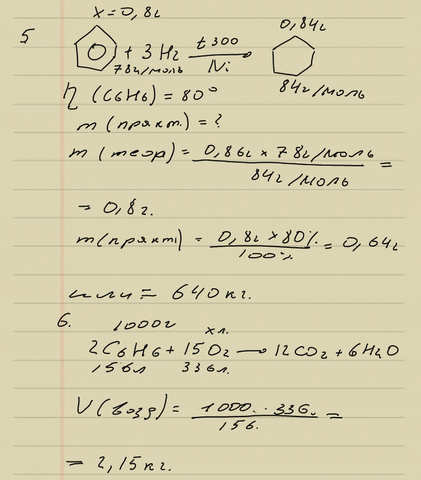 x = 0,8г
0,84г
5
+ 3H2 t 300 Ni
78г/моль
84г/моль
η (C6H6) = 80°
m (практ.) = ?
m (теор) = 0,86г × 78г/моль / 84г/моль =
= 0,8г.
m(практ) = 0,8г × 80% / 100% = 0,64г
или = 640кг.
6.
1000г xл.
2C6H6 + 15O2 → 12CO2 + 6H2O
156л 336л.
V(возд) = 1000. · 336. / 156. =
= 2,15кг.